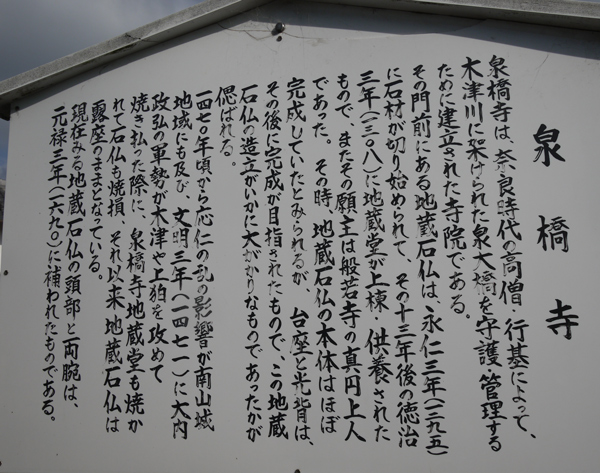 泉橋寺
泉橋寺は、奈良時代の高僧・行基によって、
木津川に架けられた泉大橋を守護・管理する
ために建立された寺院である。
その門前にある地蔵石仏は、永仁三年（一二九五）
に石材が切り始められて、その十三年後の徳治
三年（一三〇八）に地蔵堂が上棟・供養された
もので、またその願主は般若寺の真円上人
であった。その時、地蔵石仏の本体はほぼ
完成していたとみられるが、台座と光背は、
その後に完成が目指されたもので、この地蔵
石仏の造立がいかに大がかりなものであったかが
偲ばれる。
一四七〇年頃から応仁の乱の影響が南山城
地域にも及び、文明三年（一四七一）に大内
政弘の軍勢が木津や上狛を攻めて
焼き払った際に、泉橋寺地蔵堂も焼か
れて石仏も焼損、それ以来地蔵石仏は
露座のままとなっている。
現在みる地蔵石仏の頭部と両腕は、
元禄三年（一六九〇）に補われたものである。